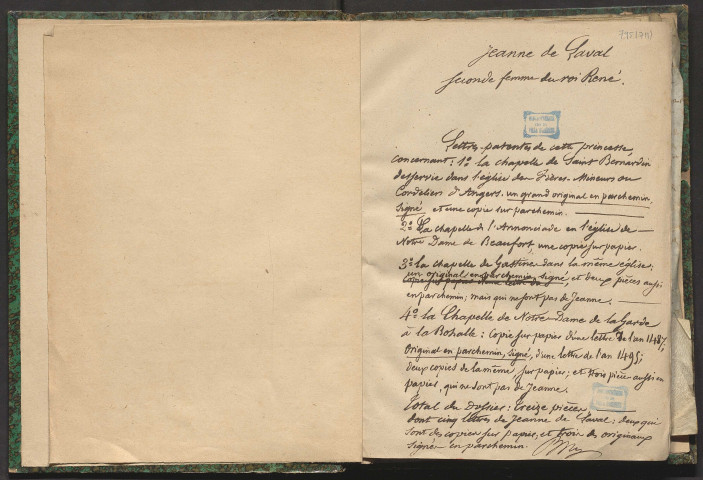 Jeanne de Laval
seconde femme du roi René.
Lettres-patentes de cette princesse
concernant: 1º la chapelle de Saint Bernardin
desservie dans l'église des Frères-Mineurs ou
Cordeliers d'Angers. un grand original en parchemin,
signé, et une copie sur parchemin.
2º La chapelle de l'Annonciade en l'église de
Notre Dame de Beaufort, une copie sur papier.
3º la chapelle de Gastine dans la même église;
un original en parchemin, signé, et deux pièces aussi
en parchemin; mais qui ne sont pas de Jeanne.
4º la Chapelle de Notre-Dame de la Garde
à la Bohalle: Copie sur papier d'une lettre de l'an 1487;
Original en parchemin, signé, d'une lettre de l'an 1495;
deux copies de la même, sur papier; et trois pièces aussi en
papier, qui ne sont pas de Jeanne.
Total du dossier: treize pièces
dont cinq lettres de Jeanne de Laval; deux qui
sont des copies sur papier, et trois des originaux
signés en parchemin.